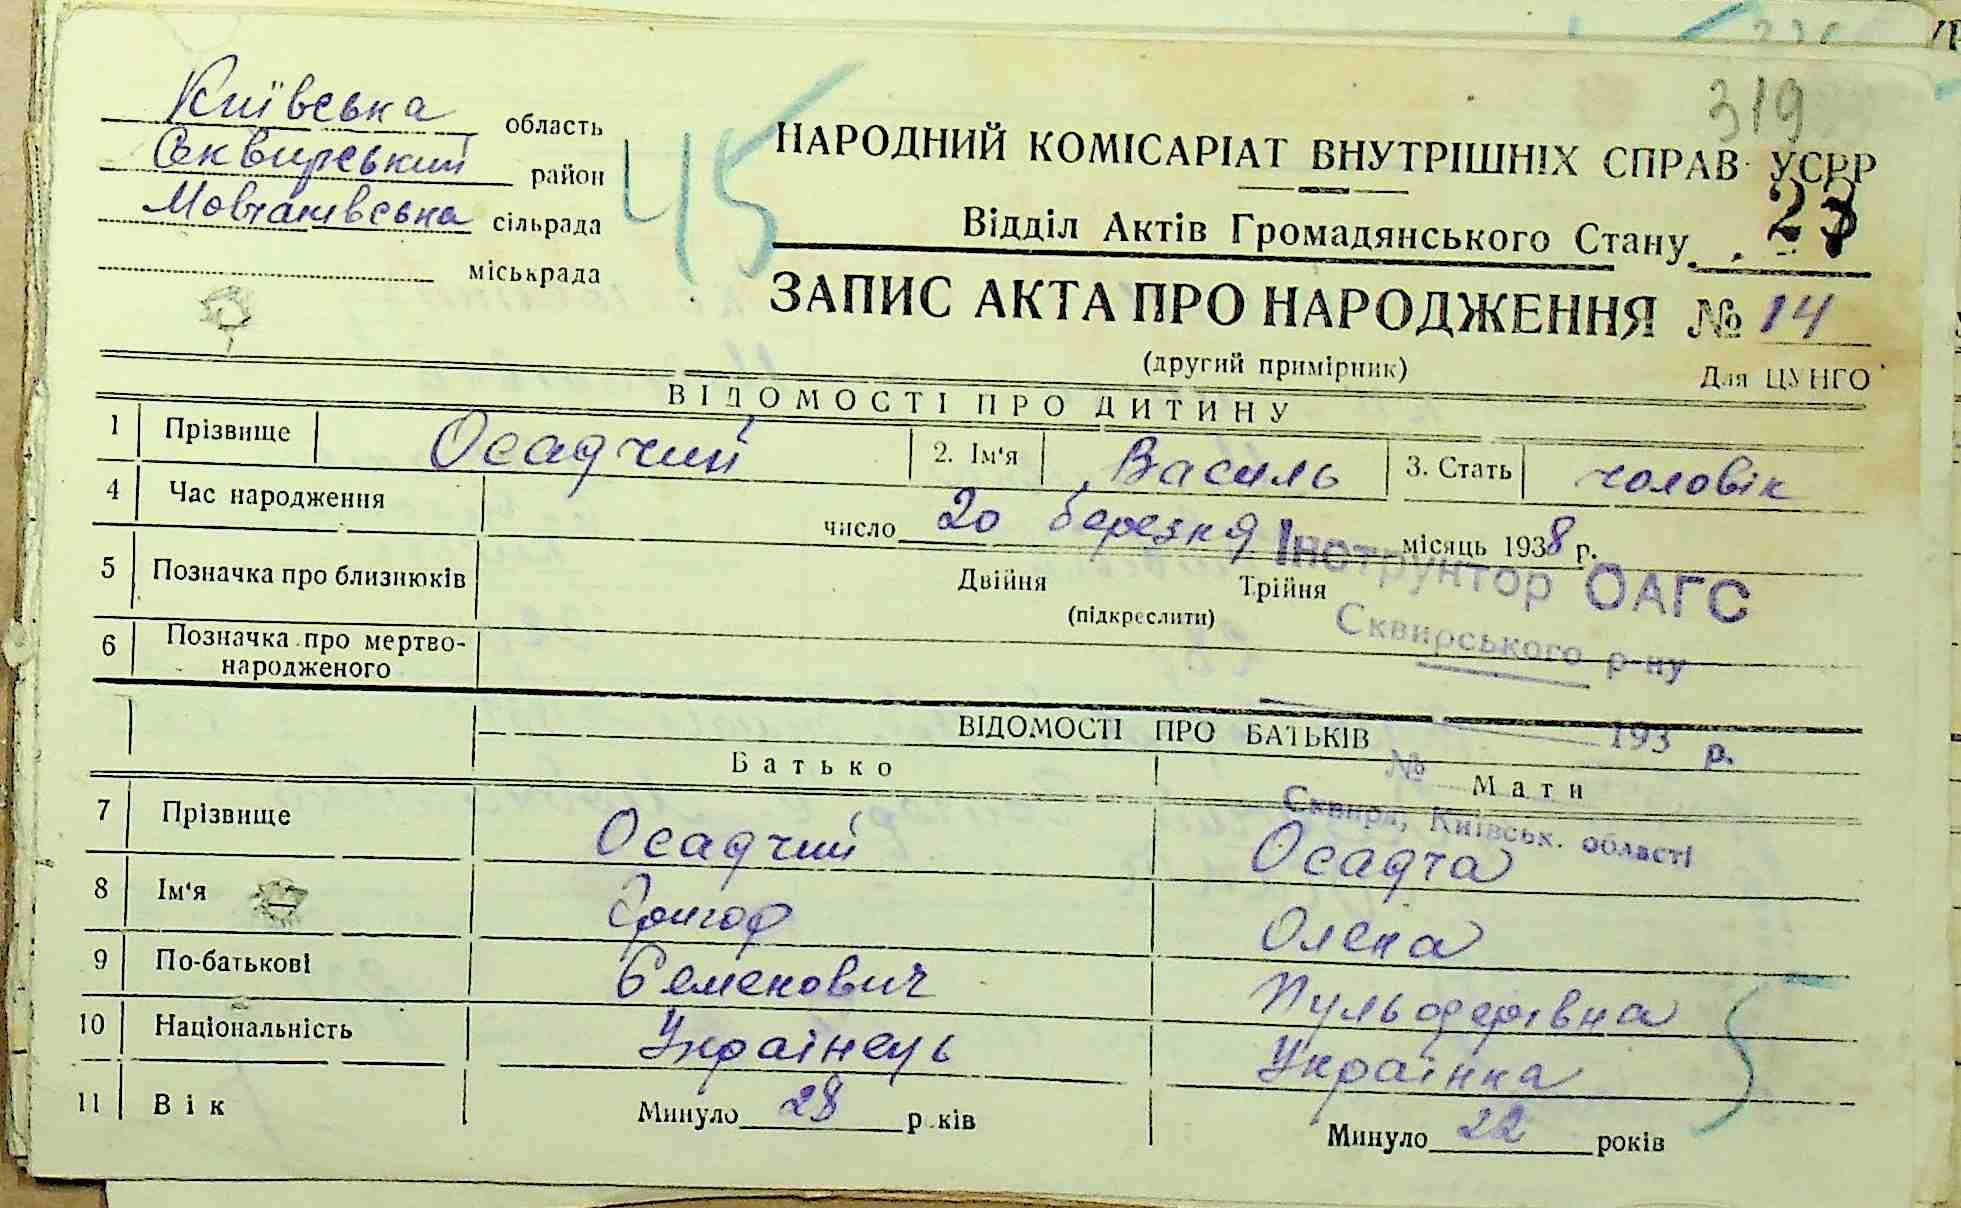 319
Київська область
Сквирський район
сільрада
міськрада
45
НАРОДНИЙ КОМІСАРІАТ ВНУТРІШНІХ СПРАВ УСРР
Відділ Актів Громадянського Стану
ЗАПИС АКТА ПРО НАРОДЖЕННЯ № 14
(другий примірник)
Для ЦУНГО
ВІДОМОСТІ ПРО ДИТИНУ
1 Прізвище Осадчий 2. Ім'я Василь 3. Стать чоловік
4 Час народження число 20 березня місяць 1938 р.
Інструктор ОАГС
5 Позначка про близнюків Двійня Трійня
(підкреслити)
Сквирського р-ну
6 Позначка про мертво-
народженого
193 р.
№
Сквира, Київськ. області
ВІДОМОСТІ ПРО БАТЬКІВ
Батько Мати
7 Прізвище Осадчий Осадча
8 Ім'я Григор Олена
9 По-батькові Семенович
10 Національність Українець Українка
11 Вік Минуло 28 років Минуло 22 років